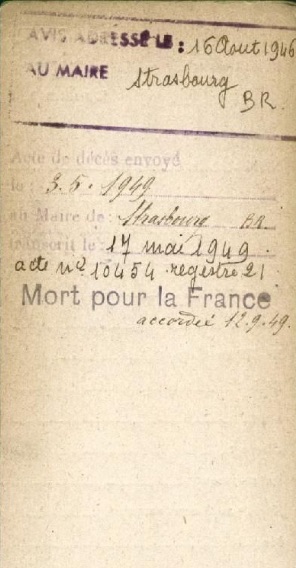 AVIS ADRESSÉ LE : 16 Aout 1946
AU MAIRE Strasbourg
BR.
Acte de décès envoyé
le : 3.5.1949
au Maire de : Strasbourg BR
transcrit le : 17 mai 1949.
acte nº 10454 registre 21
Mort pour la France
accordée 12.9.49.